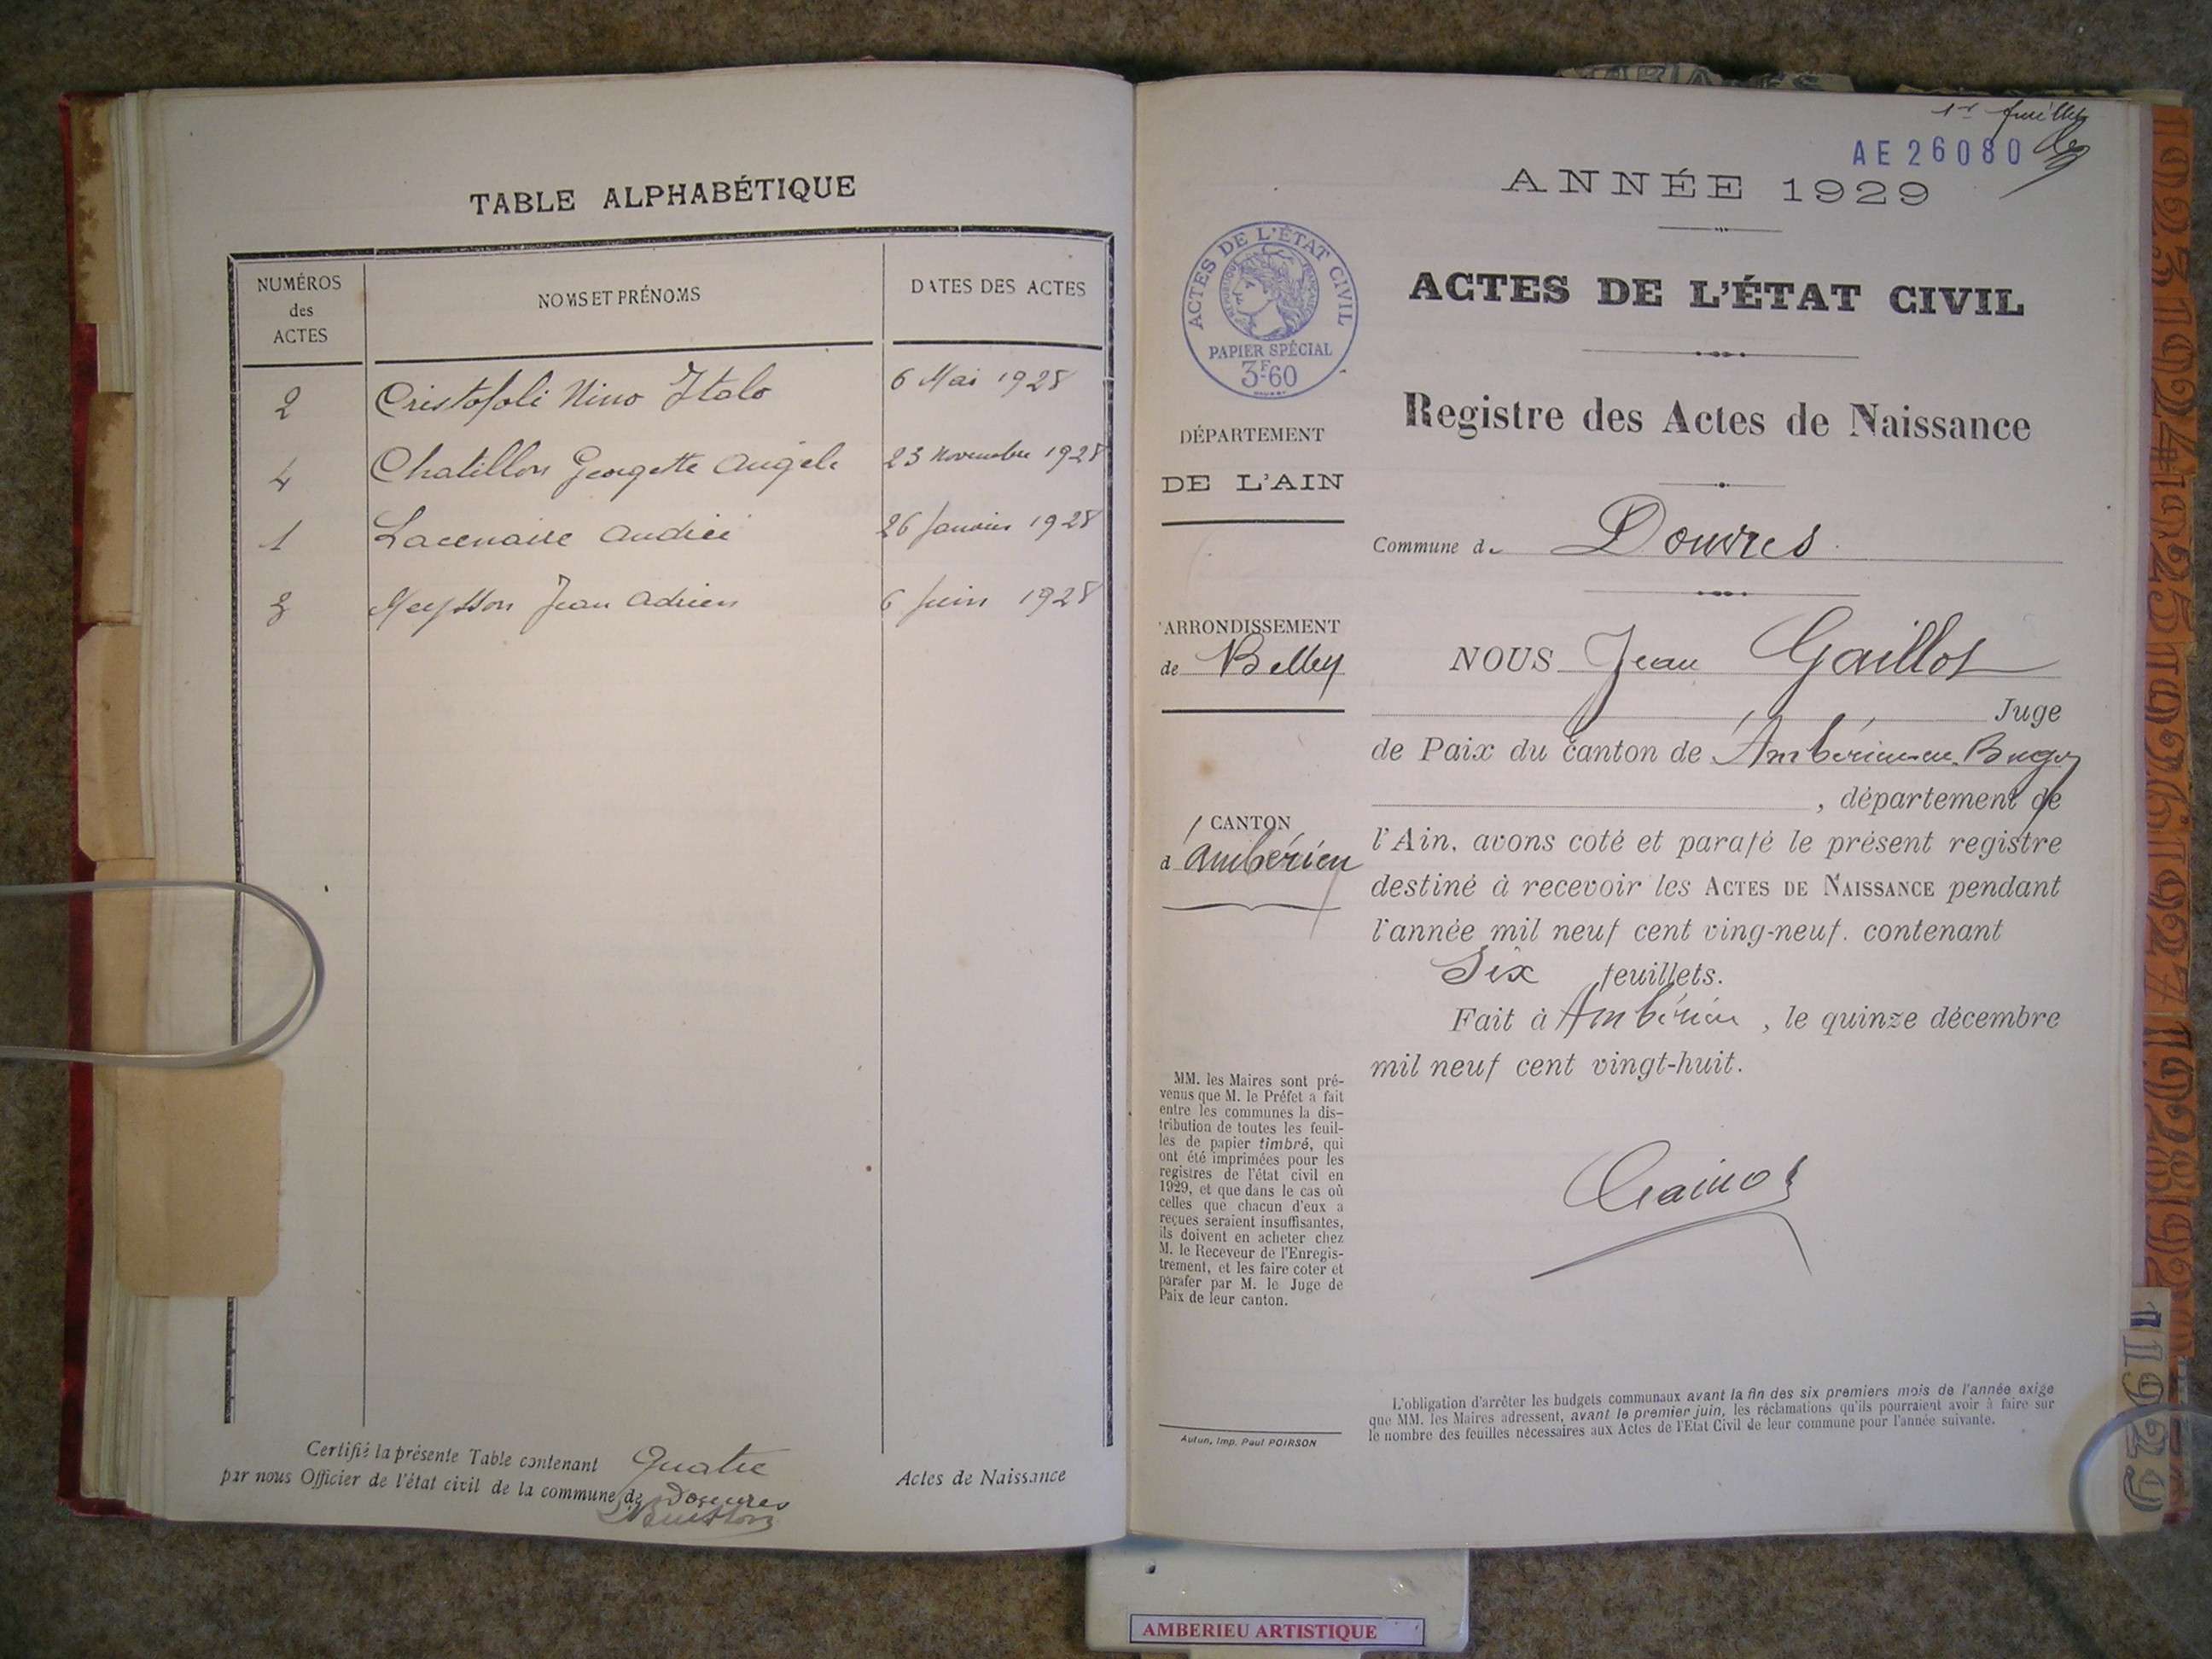 TABLE ALPHABÉTIQUE
NUMÉROS
des
ACTES
NOMS ET PRÉNOMS
DATES DES ACTES
2 Cristofoli Nino Italo 6 Mai 1928
4 Chatillon Georgette Angèle 23 Novembre 1928
1 Lacenaire Andrée 26 Janvier 1928
3 Meysson Jean Adrien 6 Juin 1928
Certifié la présente Table contenant Quatre Actes de Naissance
par nous Officier de l'état civil de la commune de Douvres
1er feuillet
AE 26080
ANNÉE 1929
ACTES DE L'ÉTAT CIVIL
RÉPUBLIQUE FRANÇAISE
PAPIER SPÉCIAL
3F60
ACTES DE L'ÉTAT CIVIL
Registre des Actes de Naissance
DÉPARTEMENT
DE L'AIN
Commune de Douvres
ARRONDISSEMENT
de Belley
CANTON
d'Ambérieu
NOUS Jean Gaillot
Juge
de Paix du canton de Ambérieu-en-Bugey
, département de
l'Ain, avons coté et parafé le présent registre
destiné à recevoir les ACTES DE NAISSANCE pendant
l'année mil neuf cent ving-neuf. contenant
Six feuillets.
Fait à Ambérieu, le quinze décembre
mil neuf cent vingt-huit.
MM. les Maires sont pré-
venus que M. le Préfet a fait
entre les communes la dis-
tribution de toutes les feuil-
les de papier timbré, qui
ont été imprimées pour les
registres de l'état civil en
1929, et que dans le cas où
celles que chacun d'eux a
reçues seraient insuffisantes,
ils doivent en acheter chez
M. le Receveur de l'Enregis-
trement, et les faire coter et
parafer par M. le Juge de
Paix de leur canton.
Autun, Imp. Paul POIRSON
L'obligation d'arrêter les budgets communaux avant la fin des six premiers mois de l'année exige
que MM. les Maires adressent, avant le premier juin, les réclamations qu'ils pourraient avoir à faire sur
le nombre des feuilles nécessaires aux Actes de l'Etat Civil de leur commune pour l'année suivante.
1923
1924
1925
1926
1927
1928
1929
AMBERIEU ARTISTIQUE